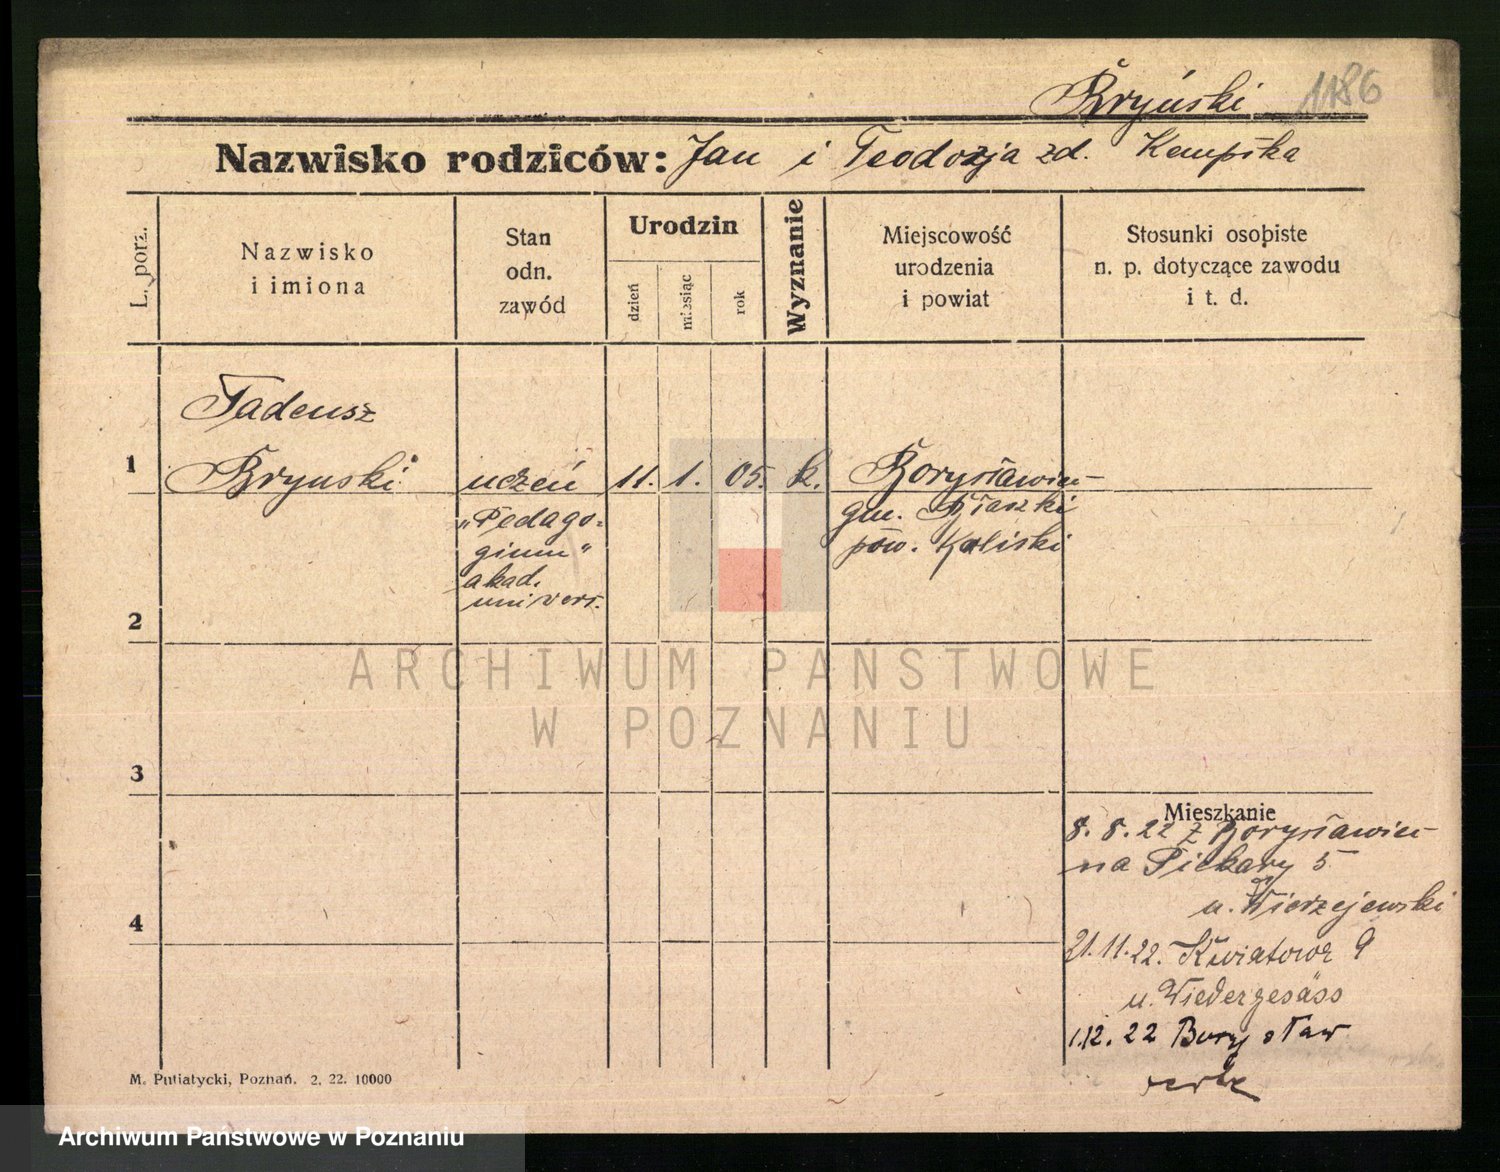 Bryński 1186
Nazwisko rodziców: Jan i Teodozja zd. Kempska
L. porz.
Nazwisko
i imiona
Stan
odn.
zawód
Urodzin
dzień
miesiąc
rok
Wyznanie
Miejscowość
urodzenia
i powiat
Stosunki osobiste
n. p. dotyczące zawodu
i t. d.
Tadeusz
1 Bryński uczeń 11. 1. 05. k. Borysławice
„Pedago-
gium"
akad.
univers.
gm. Błaszki
pow. Kaliski
2
3
4
Mieszkanie
8. 8. 22 z Borysławic
na Piekary 5
u. Wierzejewski
21. 11. 22. Kwiatowa 9
u. Wiedergesäss
1.12. 22 Borysław
M. Putiatycki, Poznań. 2. 22. 10000
ARCHIWUM PAŃSTWOWE
W POZNANIU
Archiwum Państwowe w Poznaniu